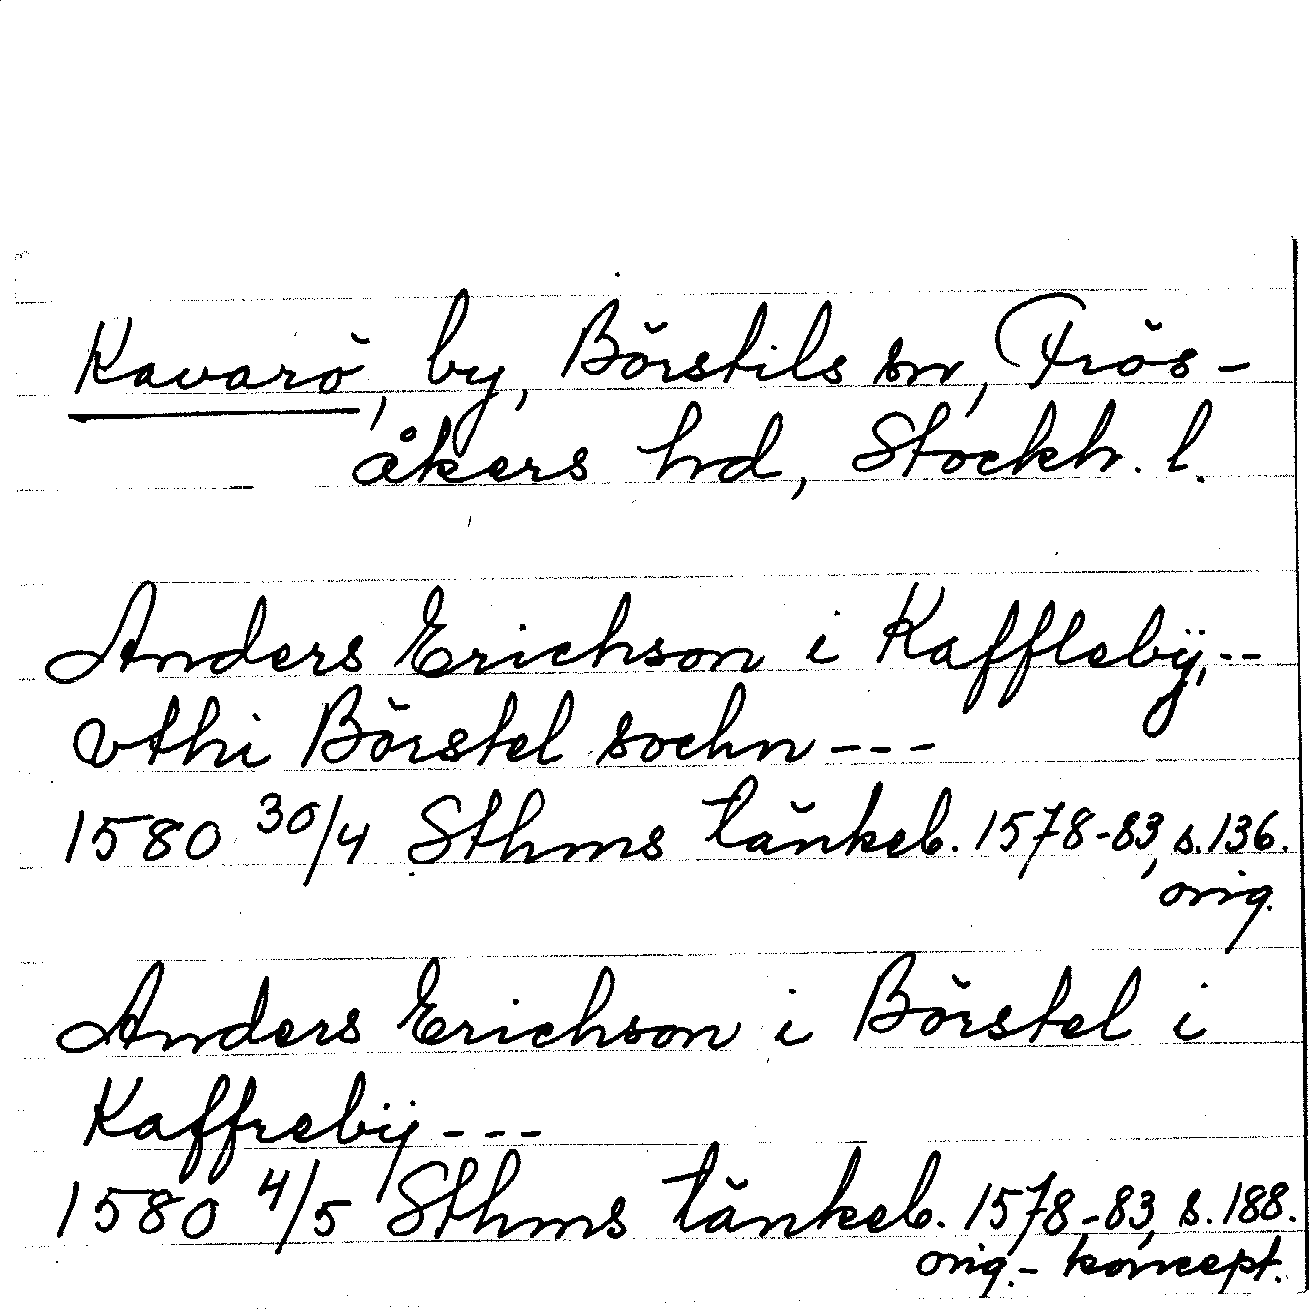 Kavarö, by, Börstils sn, Frös-
åkers hd, Stockh. l.
Anders Erichson i Kafflebÿ, --
vthi Börstel sochn ---
1580 30/4 Sthms tänkeb. 1578-83, s. 136.
orig.
Anders Erichson i Börstel i
Kaffrebÿ ---
1580 4/5 Sthms tänkeb. 1578-83, s. 188.
orig.- koncept.